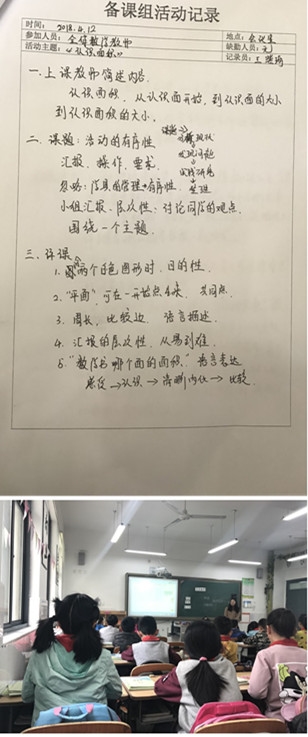 备课组活动记录
时间：2018.4.12
地点：会议室
参加人员：全体数学教师
缺勤人员：无
活动主题：《认识面积》
记录员：王
一．上课教师简述内容．
认识面积．从认识面开始，到认识面的大小
到认识面积的大小．
二．课题：活动的有序性
汇报．操作．要求．
发现问题
整理
忽略：学具的管理→有序性
小组汇报．层次性：讨论同学的观点．
围绕一个主题．
三．评课
1. 两个白色图形时．目的性．
2. "平面"，可在一开始点出来．共同点．
3. 周长，比较边．语言描述．
4. 汇报的层次性．从易到难．
5. "数学书哪个面的面积" 语言表达
感受→认识→清晰内化→比较．